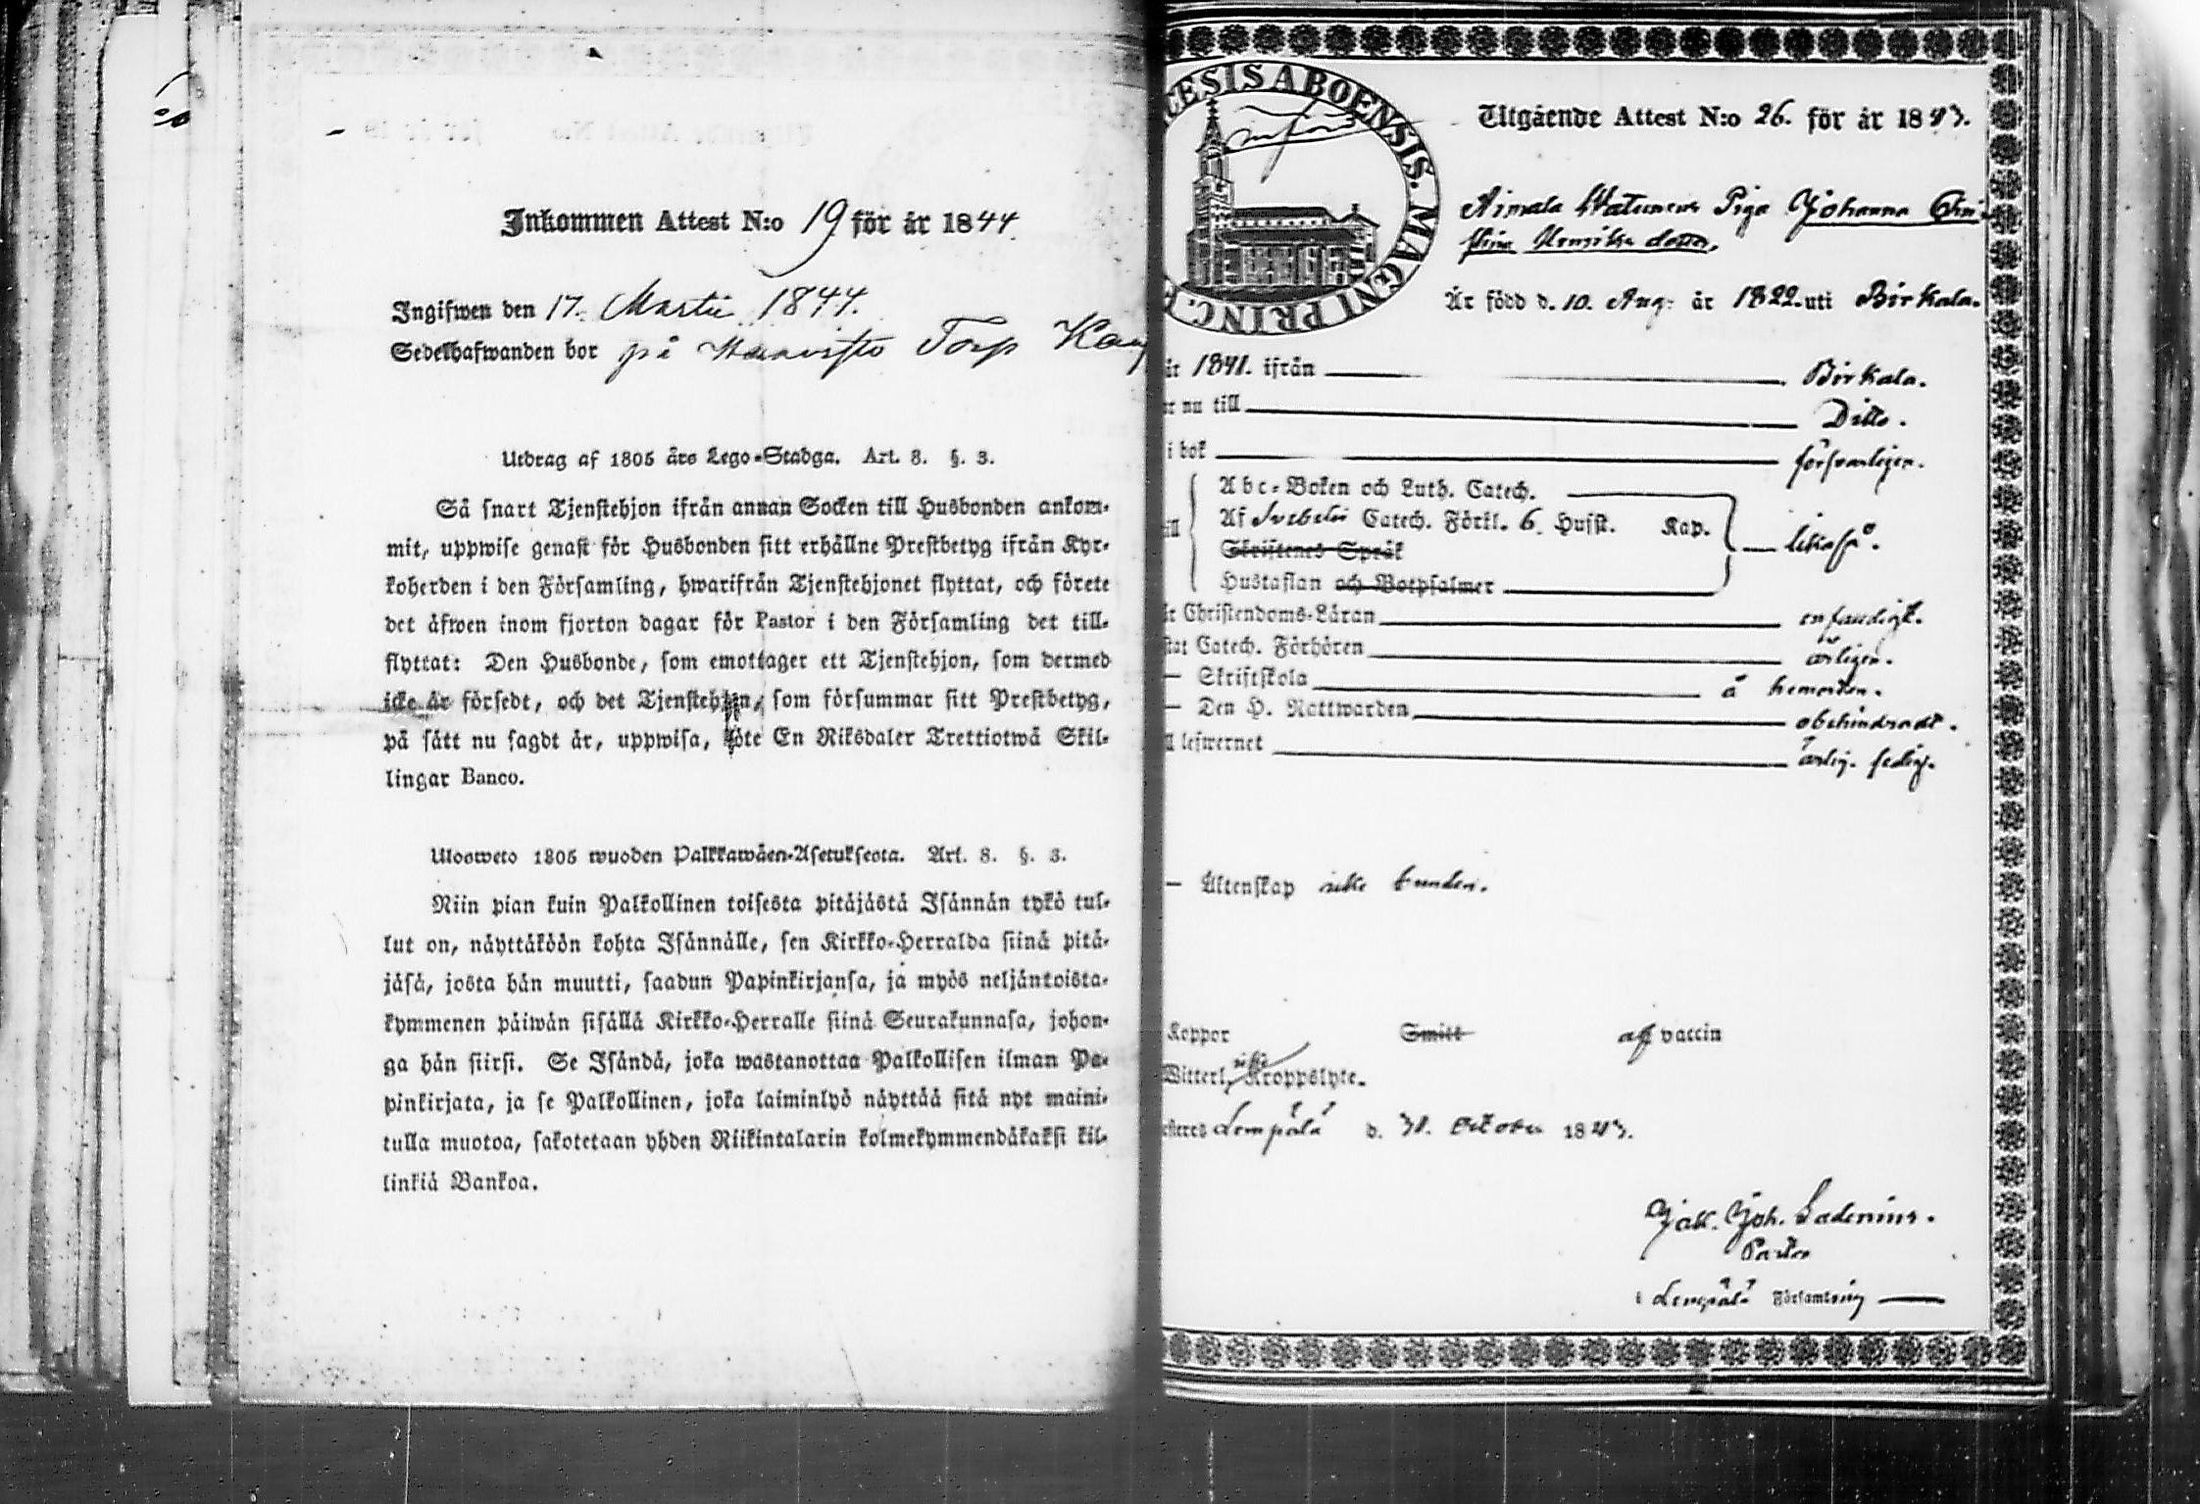 Inkommen Attest N:o 19 för år 1844.
Ingifwen den 17. Martii 1844.
Sedelhafwanden bor på Torp
Utdrag af 1805 års Lego-Stadga. Art. 8. §. 3.
Så snart Tjenstehjon ifrån annan Socken till Husbonden ankom-
mit, uppwise genast för Husbonden sitt erhållne Prestbetyg ifrån Kyr-
koherden i den Församling, hwarifrån Tjenstehjonet flyttat, och förete
det äfwen inom fjorton dagar för Pastor i den Församling det till-
flyttat: Den Husbonde, som emottager ett Tjenstehjon, som dermed
icke är försedt, och det Tjenstehjon, som försummar sitt Prestbetyg,
på sätt nu sagdt är, uppwisa, böte En Riksdaler Trettiotwå Skil-
lingar Banco.
Ulosweto 1805 wuoden Palkkawäen-Asetuksesta. Art. 8. §. 3.
Niin pian kuin Palkollinen toisesta pitäjästä Isännän tykö tul-
lut on, näyttäköön kohta Isännälle, sen Kirkko-Herralda siinä pitä-
jäsä, josta hän muutti, saadun Papinkirjansa, ja myös neljäntoista-
kymmenen päiwän sisällä Kirkko-Herralle siinä Seurakunnasa, johon-
ga hän siirsi. Se Isändä, joka wastanottaa Palkollisen ilman Pa-
pinkirjata, ja se Palkollinen, joka laiminlyö näyttää sitä nyt maini-
tulla muotoa, sakotetaan yhden Riikintalarin kolmekymmendäkaksi kil-
linkiä Bankoa.
CESIS ABOENSIS. MAGNI PRINC.
införd
Utgående Attest N:o 26. för år 1843.
Aimala Piga Johanna Chri-
stina Henriksdotter,
Är född d. 10. Aug: år 1822. uti Birkala.
år 1841. ifrån Birkala.
nu till Ditto.
i bok försvarligen.
Abc-Boken och Luth. Catech.
Af Svebelii Catech. Förkl. 6 Hufst. Kap. likaså.
Skriftenes Språk
Hustaflan och Botpsalmer
Christendoms-Läran enfaldigt.
Catech. Förhören årligen.
— Skriftskola å hemorten.
— Den H. Nattwarden obehindradt.
lefwernet ärlig. fedig.
— Äktenskap icke bunden.
Koppor Smitt af vaccin
Witterl. icke Kroppslyte.
Lempälä d. 31. October 1843.
Jak. Joh. Ladenius.
Pastor
i Lempälä Församling